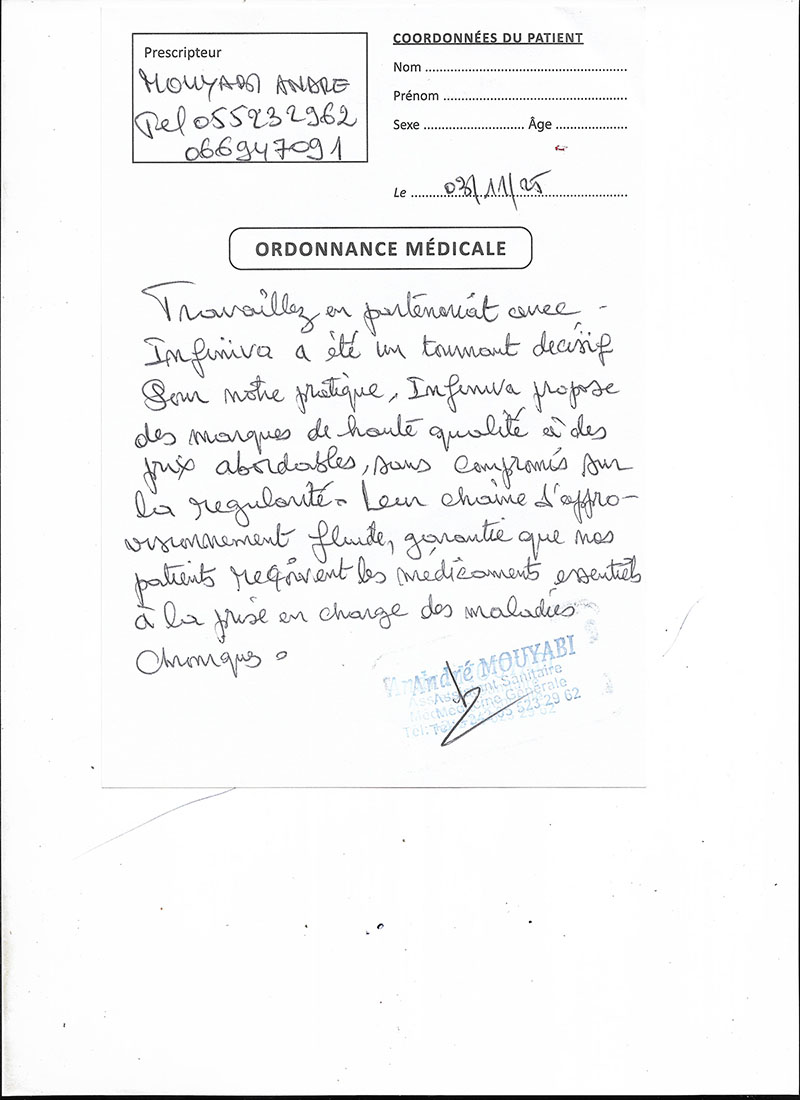 Prescripteur
MOUYABI ANDRE
Tel 055232962
066947091
COORDONNÉES DU PATIENT
Nom
Prénom
Sexe Âge
Le 03/11/25
ORDONNANCE MÉDICALE
Travaillez en partenariat avec
Infiniva a été un tournant decisif
Pour notre pratique, Infiniva propose
des marques de haute qualité à des
prix abordables, sans compromis sur
la regularité. Leur chaîne d'appro-
visionnement fluide, garantie que nos
patients reçoivent les médicaments essentiels
à la prise en charge des maladies
Chroniques.
André MOUYABI
Assistant Sanitaire
Médecine Générale
523 29 62